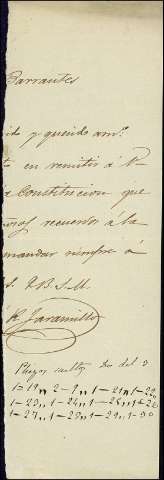 Barrantes
ido y querido am.º
to en remitir á V.
a Constitucion que
uños recuerdos á la
mandar siempre á
S. Q. B. S. M.
R. Jaramillo
Pliegos sueltos
1-19,, 2-9,, 1-21,, 1-22,,
1-23,, 1-24,, 1-25,, 1-26,,
1-27,, 1-28,, 1-29,, 1-30